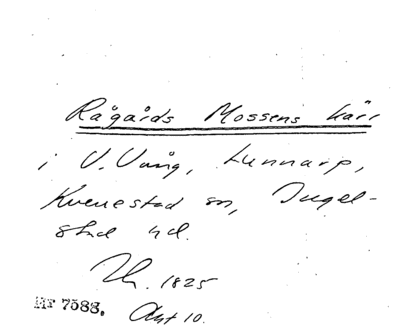 Rågårds Mossens kärr
i V. Vång, Lunnarp,
Kverrestad sn, Ingel-
stad hd.
1825
MF 7588. Akt 10.